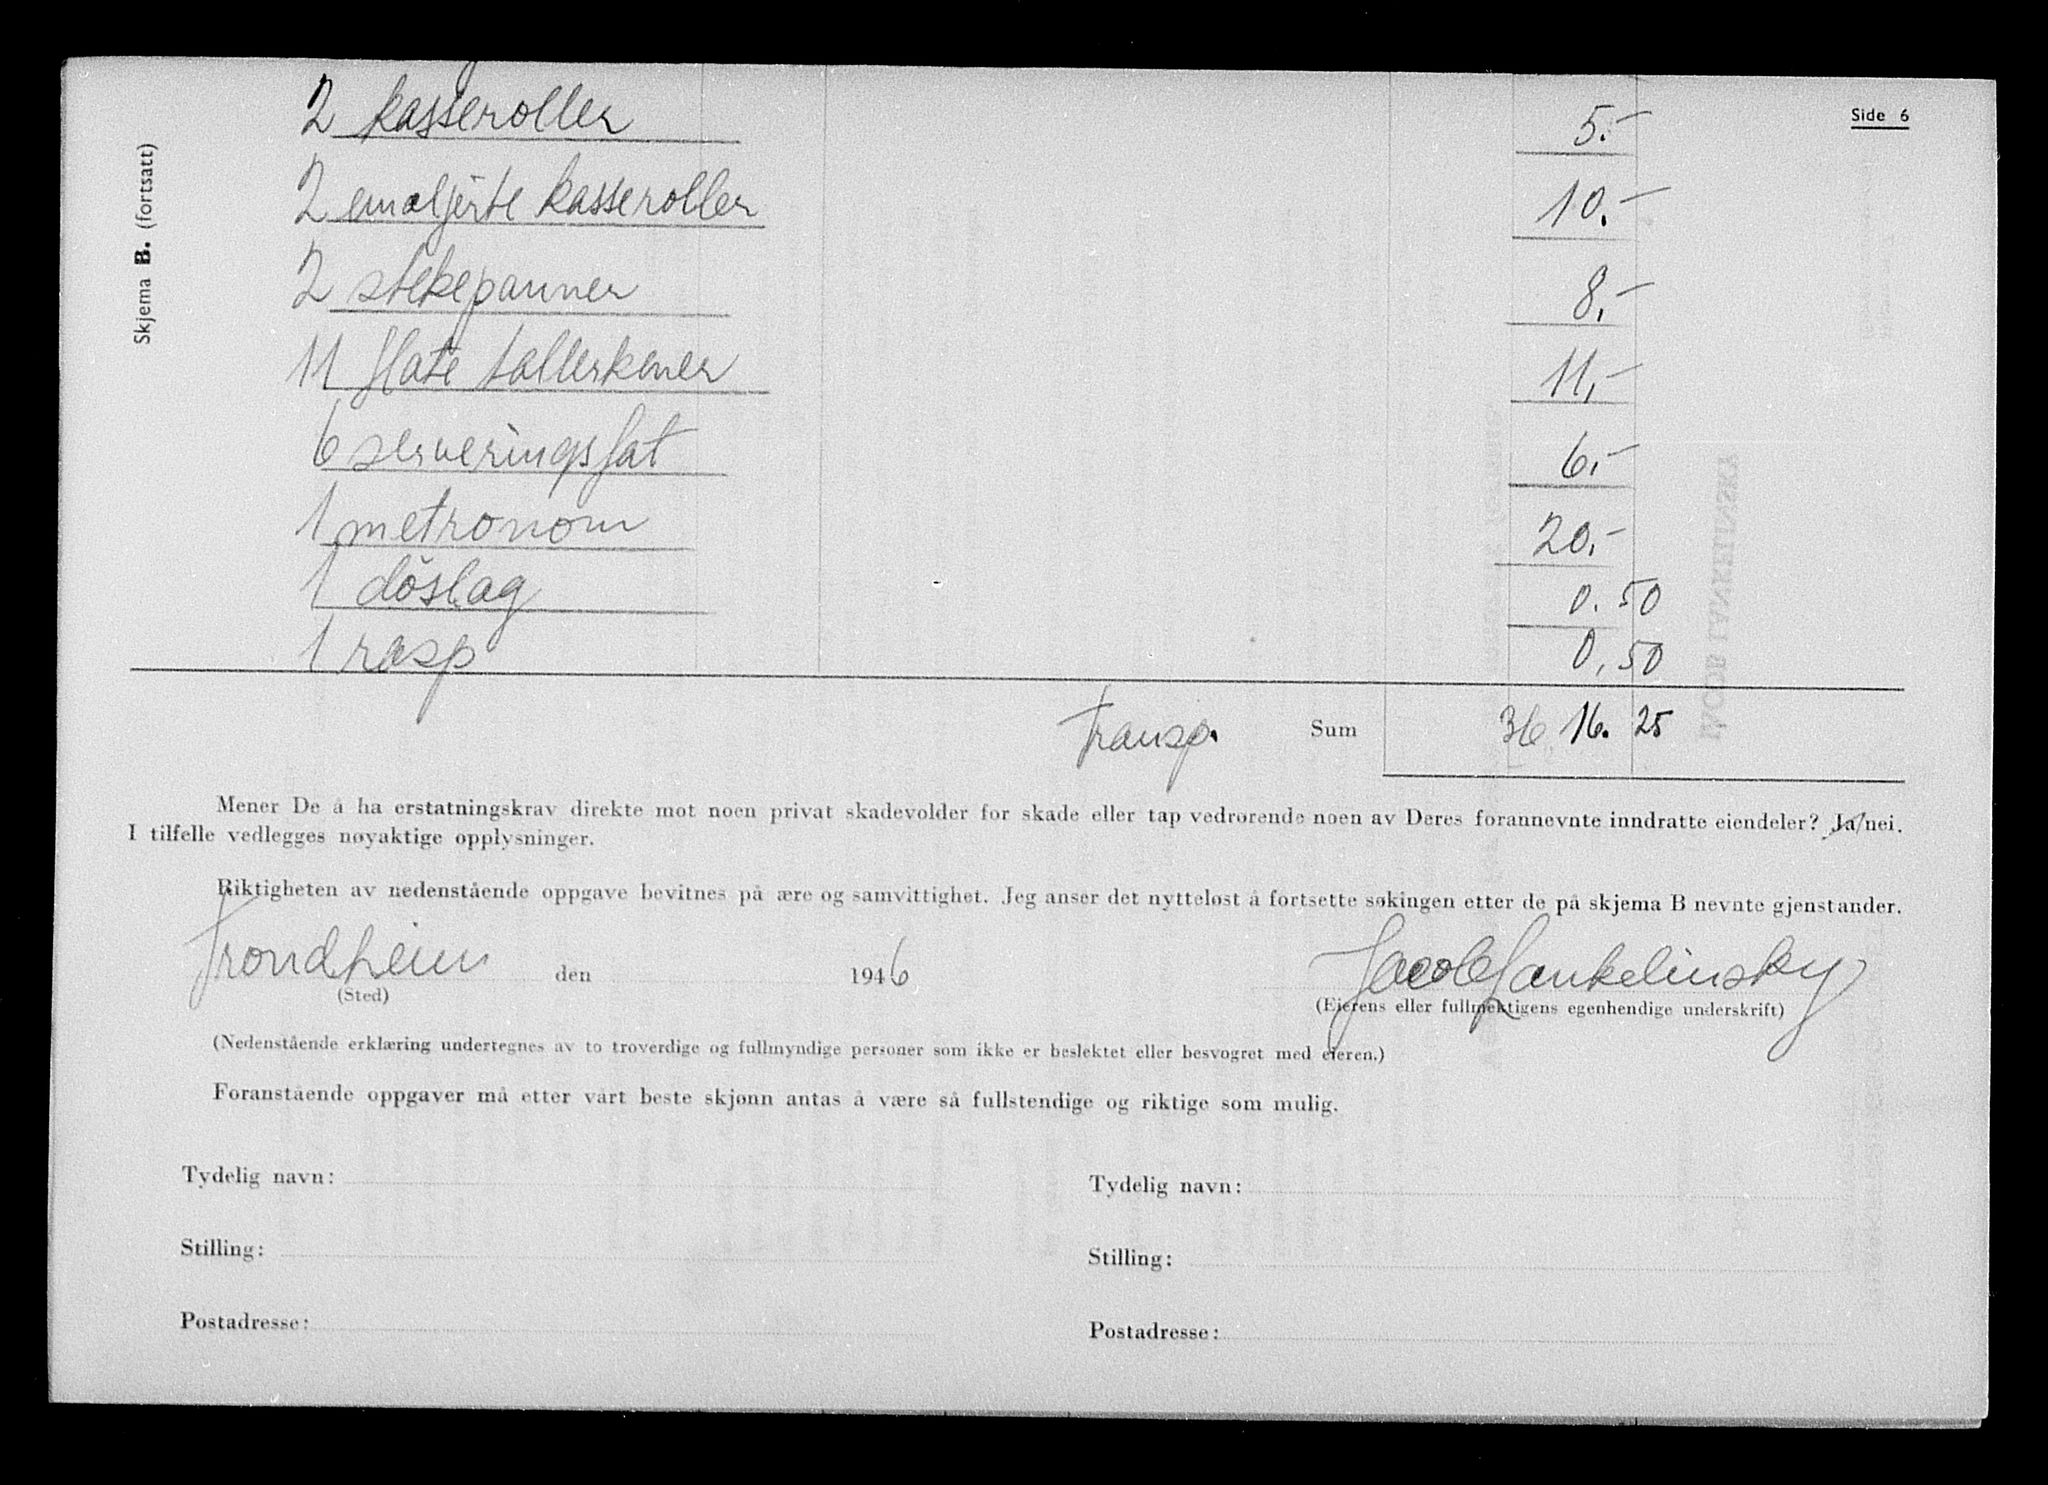 Side 6
Skjema B. (fortsatt)
2 kasseroller 5.-
2 emaljerte kasseroller 10.-
2 stekepanner 8.-
11 flate tallerkener 11,-
6 serveringsfat 6.-
1 metronom 20.-
1 döslag 0.50
1 rasp 0,50
Transp. Sum 36 16. 25
Mener De å ha erstatningskrav direkte mot noen privat skadevolder for skade eller tap vedrørende noen av Deres forannevnte inndratte eiendeler? Ja/nei.
I tilfelle vedlegges nøyaktige opplysninger.
Riktigheten av nedenstående oppgave bevitnes på ære og samvittighet. Jeg anser det nytteløst å fortsette søkingen etter de på skjema B nevnte gjenstander.
Trondheim den 1946 Jacob Jankelinsky
(Sted) (Eierens eller fullmektigens egenhendige underskrift)
(Nedenstående erklæring undertegnes av to troverdige og fullmyndige personer som ikke er beslektet eller besvogret med eieren.)
Foranstående oppgaver må etter vårt beste skjønn antas å være så fullstendige og riktige som mulig.
Tydelig navn: Tydelig navn:
Stilling: Stilling:
Postadresse: Postadresse: